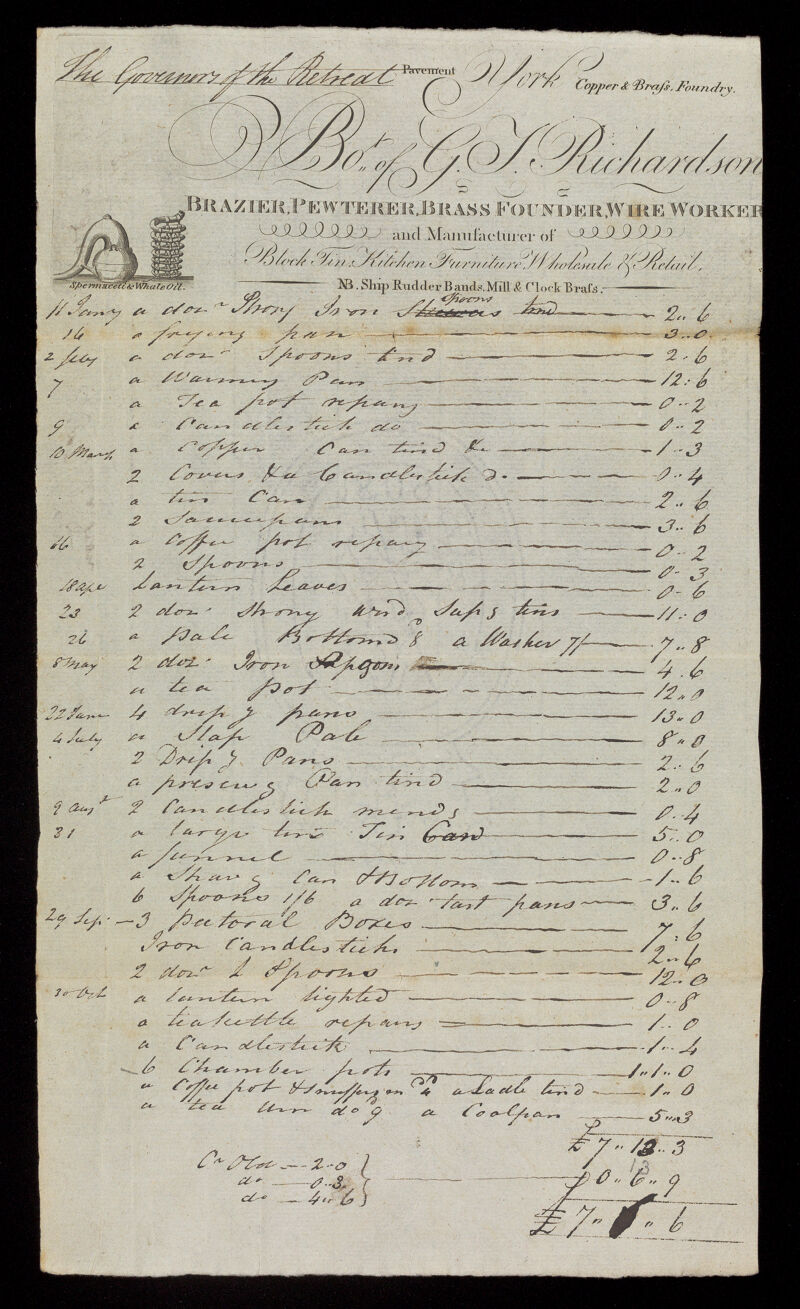 The Governors of the Retreat Pavement York Copper & Braſs, Foundry.
Bot. of G. T. Richardson
BRAZIER, PEWTERER, BRASS FOUNDER, WIRE WORKER
and Manufacturer of
Block Tin, Kitchen Furniture, Wholesale & Retail.
Spermaceti & Whale Oil.
NB. Ship Rudder Bands, Mill & Clock Braſs.
11 Jany a dozn Strong Iron spoons tind 2〃6
16 a frying pan 3〃0
2 feby a dozn Spoons tind 2〃6
7 a Warming Pan 12〃6
a Tea pot repang 0〃2
9 a Candlestick do 0〃2
10 March a Copper Can tind &c 1〃3
2 Covers & a Candlestick Do 0〃4
a tin Can 2〃6
2 Saucepans 3〃6
16 a Coffee pot repairg 0〃2
2 Spoons 0〃3
18 ape Lantern Leaves 0〃6
23 2 dozn strong tins 11〃0
26 a Pale Bottomd & a Washer 7/ 7〃8
8 May 2 dozn Iron 4〃6
a tea pot 12〃0
22 June 4 dripg pans 13〃0
4 July a Slap Pale 8〃0
2 Dripg Pans 2〃6
a preservg Pan tind 2〃0
9 augt 2 Candlestick mendg 0〃4
31 a large tin Tin Can 5〃0
a funnel 0〃8
a Shavg Can & Bottom 1〃6
6 Spoons 1/6 a dozn tart pans 3〃6
29 Sep. 3 Boxes 7〃6
Iron Candlesticks 2〃6
2 dozn Spoons 12〃0
30 Oct a lantern lighted 0〃8
a teakettle repairs 1〃0
a Candlestick 1〃4
6 Chamber pots 1〃1〃0
a Coffee pot & Snuffers & a Ladle tind 1〃0
a tea Urn do & a Coalpan 5〃3
£7〃13〃3
13
Cr Old 2〃0
do 0〃3 0〃6〃9
do 4〃6
£7〃 〃6